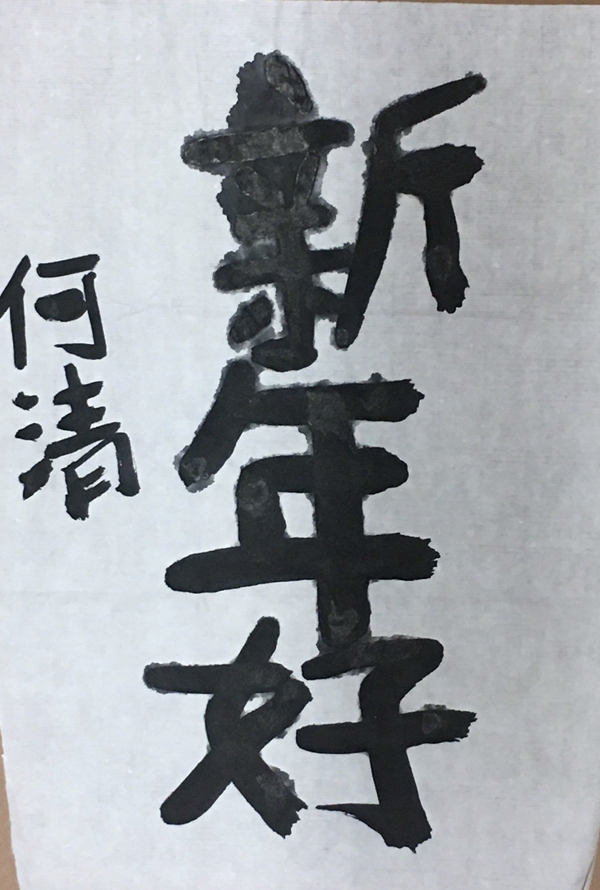 新年好
何清